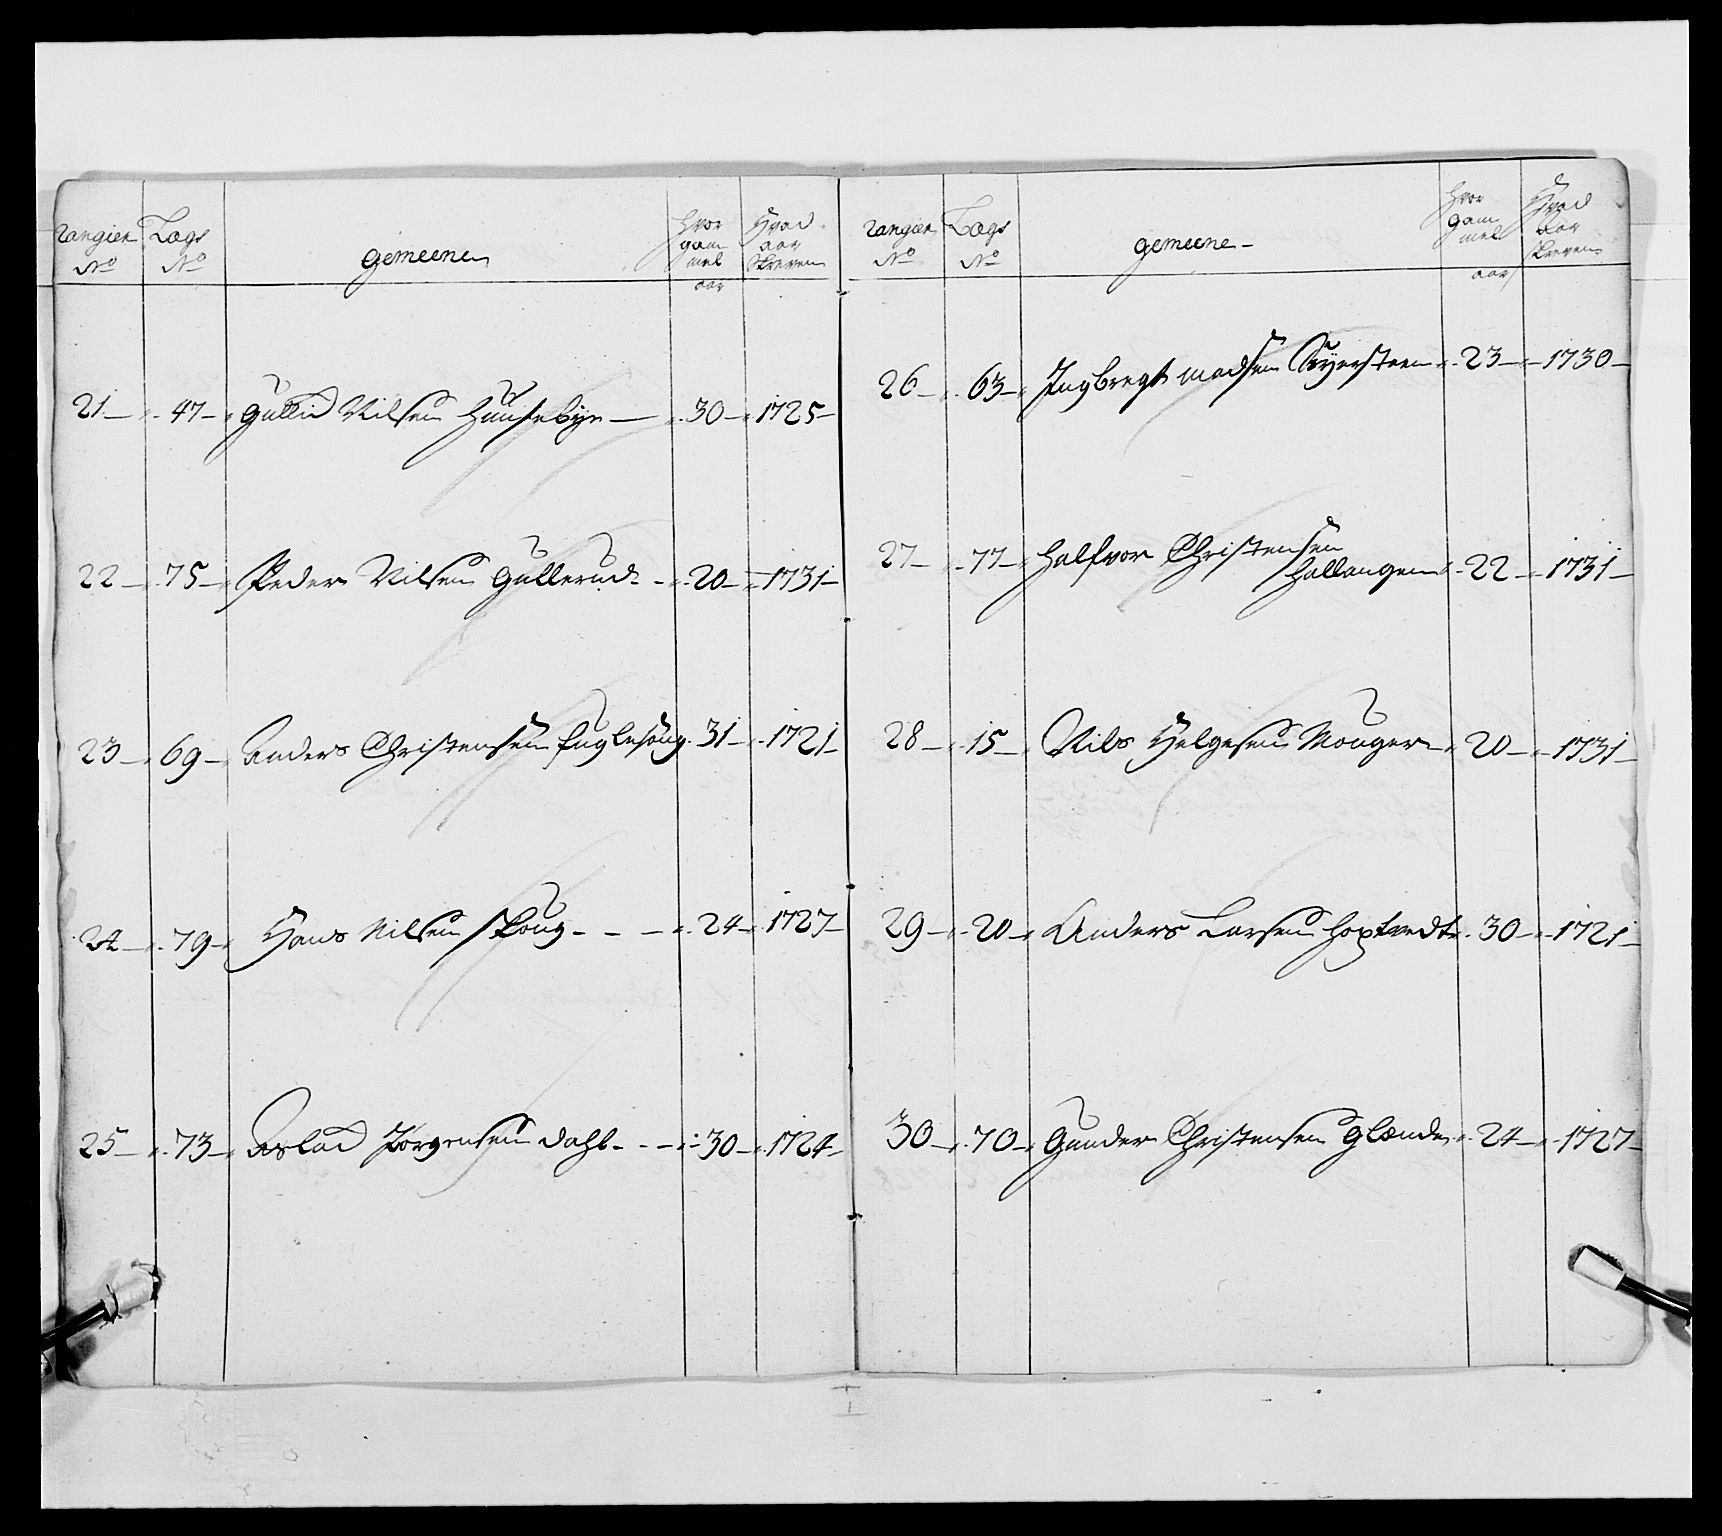 Rangien No
Lægs No
Gemeene
Hvor gam mel aar
Hvad aar Skreven
21 47 Gullid Nilsen Huuseby 30 1725
22 75 Peder Nilsen Gullerud 20 1731
23 69 Anders Christensen Fuglesang 31 1721
24 79 Hans Nilsen Skoug 24 1727
25 73 Aslad Jörgensen Dahl 30 1724
Rangien No
Lægs No
Gemeene
Hvor gam mel aar
Hvad Aar Skreven
26 63 Ingbregt Madsen 23 1730
27 77 Halfvor Christensen
Hallangen 22 1731
28 15 Nils Helgesen Mouger 20 1731
29 20 Anders Larsen 30 1721
30 70 Gunder Christensen Glænde 24 1727